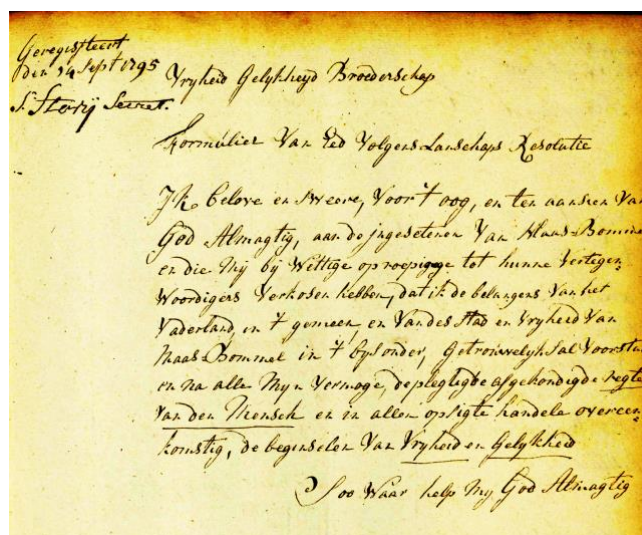 Geregistreert
den 14 Sept 1795
S. Storij Secret.
Vryheid Gelykheyd Broederschap
Formúlier Van Eed Volgens Lanschaps Resolutie
Jk belove en Sweere, Voor 't oog, en ten aansien Van
God Almagtig, aan de jngesetenen Van Maas-Bomme
en die Mij bij Wettige oproepinge tot hunne Vertegen-
Woordigers Verkosen hebben, dat ik de belangens Van het
Vaderland, in 't gemeen, en Van des Stad en Vryheid Van
Maas-Bommel in 't bysonder, Getrouwelyk Sal Voorsta
en na alle Myn Vermoge, de plegtigde afgekondigde regte
Van den Mensch en in allen opsigte handele overeen-
komstig, de beginselen Van Vryheid en Gelykheid
Soo Waar help My God Almagtig